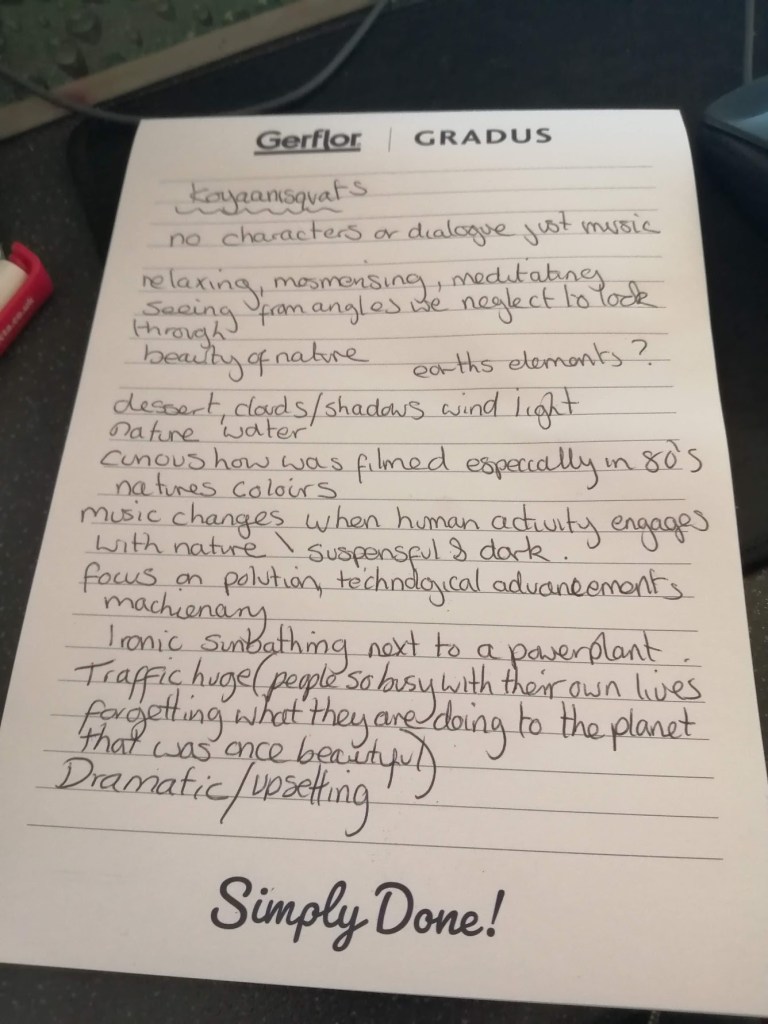 Gerflor | GRADUS
Koyaanisqvats
no characters or dialogue just music
relaxing, mosmensing, meditating
seeing from angles we neglect to look
through
beauty of nature earths elements?
dessert, clouds/shadows wind light
nature water
curious how was filmed especcally in 80's
natures coloirs
music changes when human activity engages
with nature \ suspensful & dark.
focus on polution, technological advancements
machienary
Ironic sunbathing next to a powerplant.
Traffic huge (people so busy with their own lives
forgetting what they are doing to the planet
that was once beautyful)
Dramatic/upsetting
Simply Done!